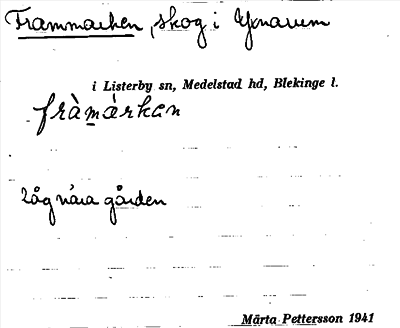 Frammarken, skog i Yxnarum
i Listerby sn, Medelstad hd, Blekinge l.
fràmárkan
Låg nära gården
Märta Pettersson 1941